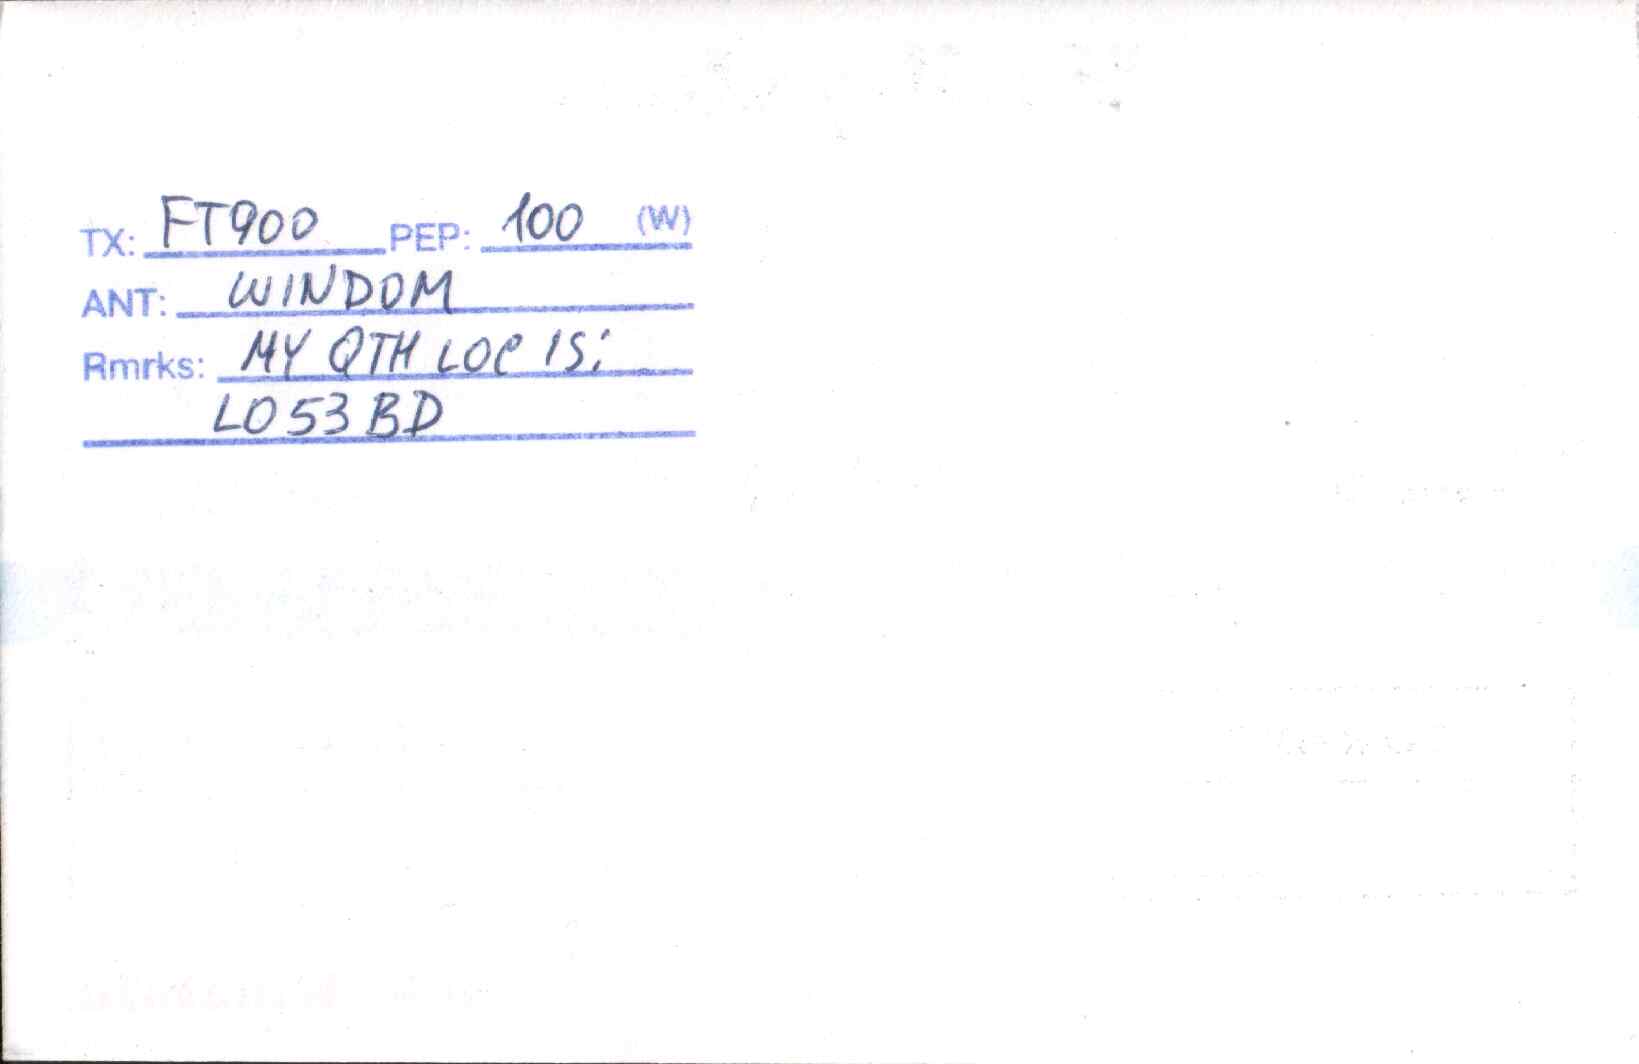 TX: FT900 PEP: 100 (W)
ANT: WINDOM
Rmrks: MY QTH LOC IS:
LO53BD